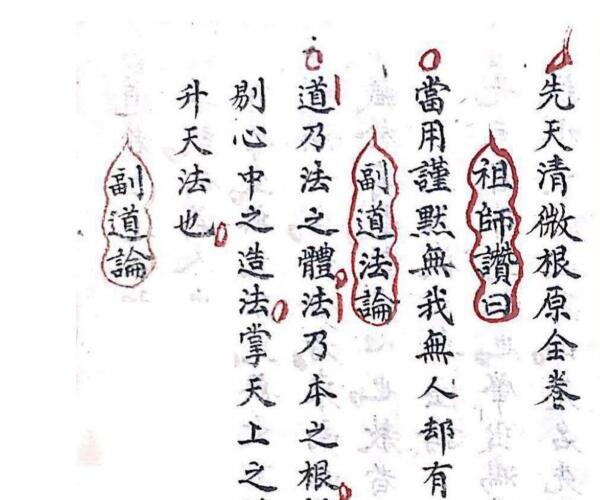 先天清微根原全卷
祖師讚曰
當用謹默無我無人却有
副道法論
道乃法之體法乃本之根
剔心中之造法掌天上之
升天法也
副道論